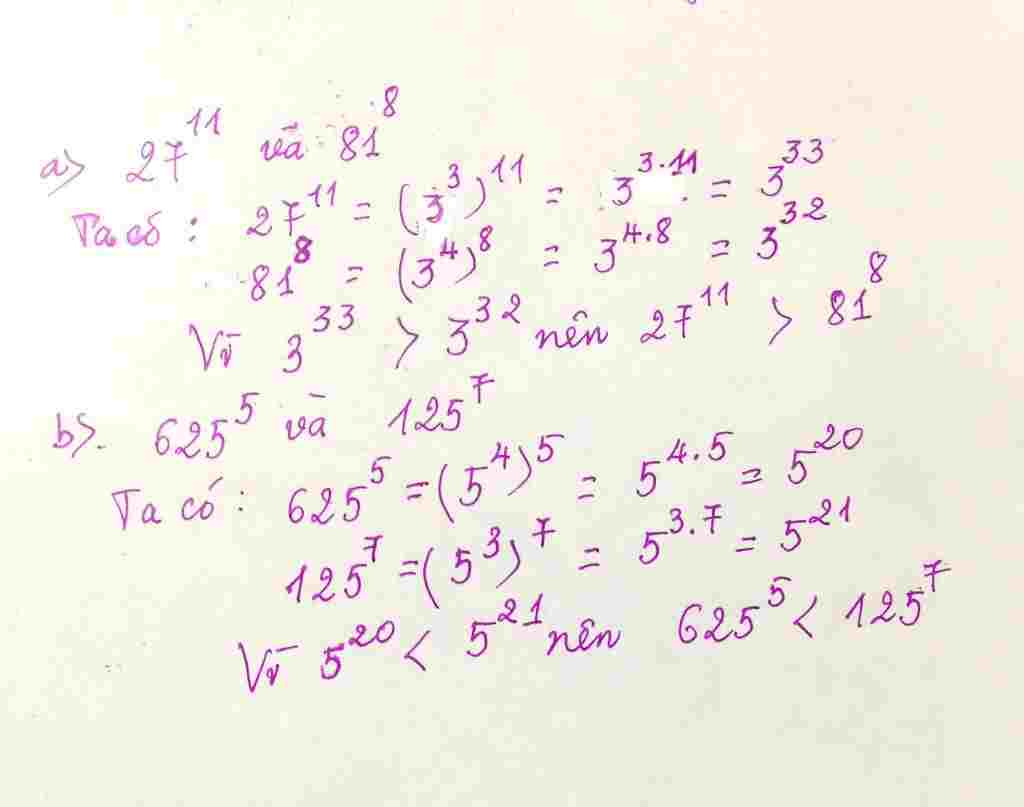 a) 27¹¹ và 81⁸
Ta có : 27¹¹ = (3³)¹¹ = 3³·¹¹ = 3³³
81⁸ = (3⁴)⁸ = 3⁴·⁸ = 3³²
Vì 3³³ > 3³² nên 27¹¹ > 81⁸
b). 625⁵ và 125⁷
Ta có : 625⁵ = (5⁴)⁵ = 5⁴·⁵ = 5²⁰
125⁷ = (5³)⁷ = 5³·⁷ = 5²¹
Vì 5²⁰ < 5²¹ nên 625⁵ < 125⁷